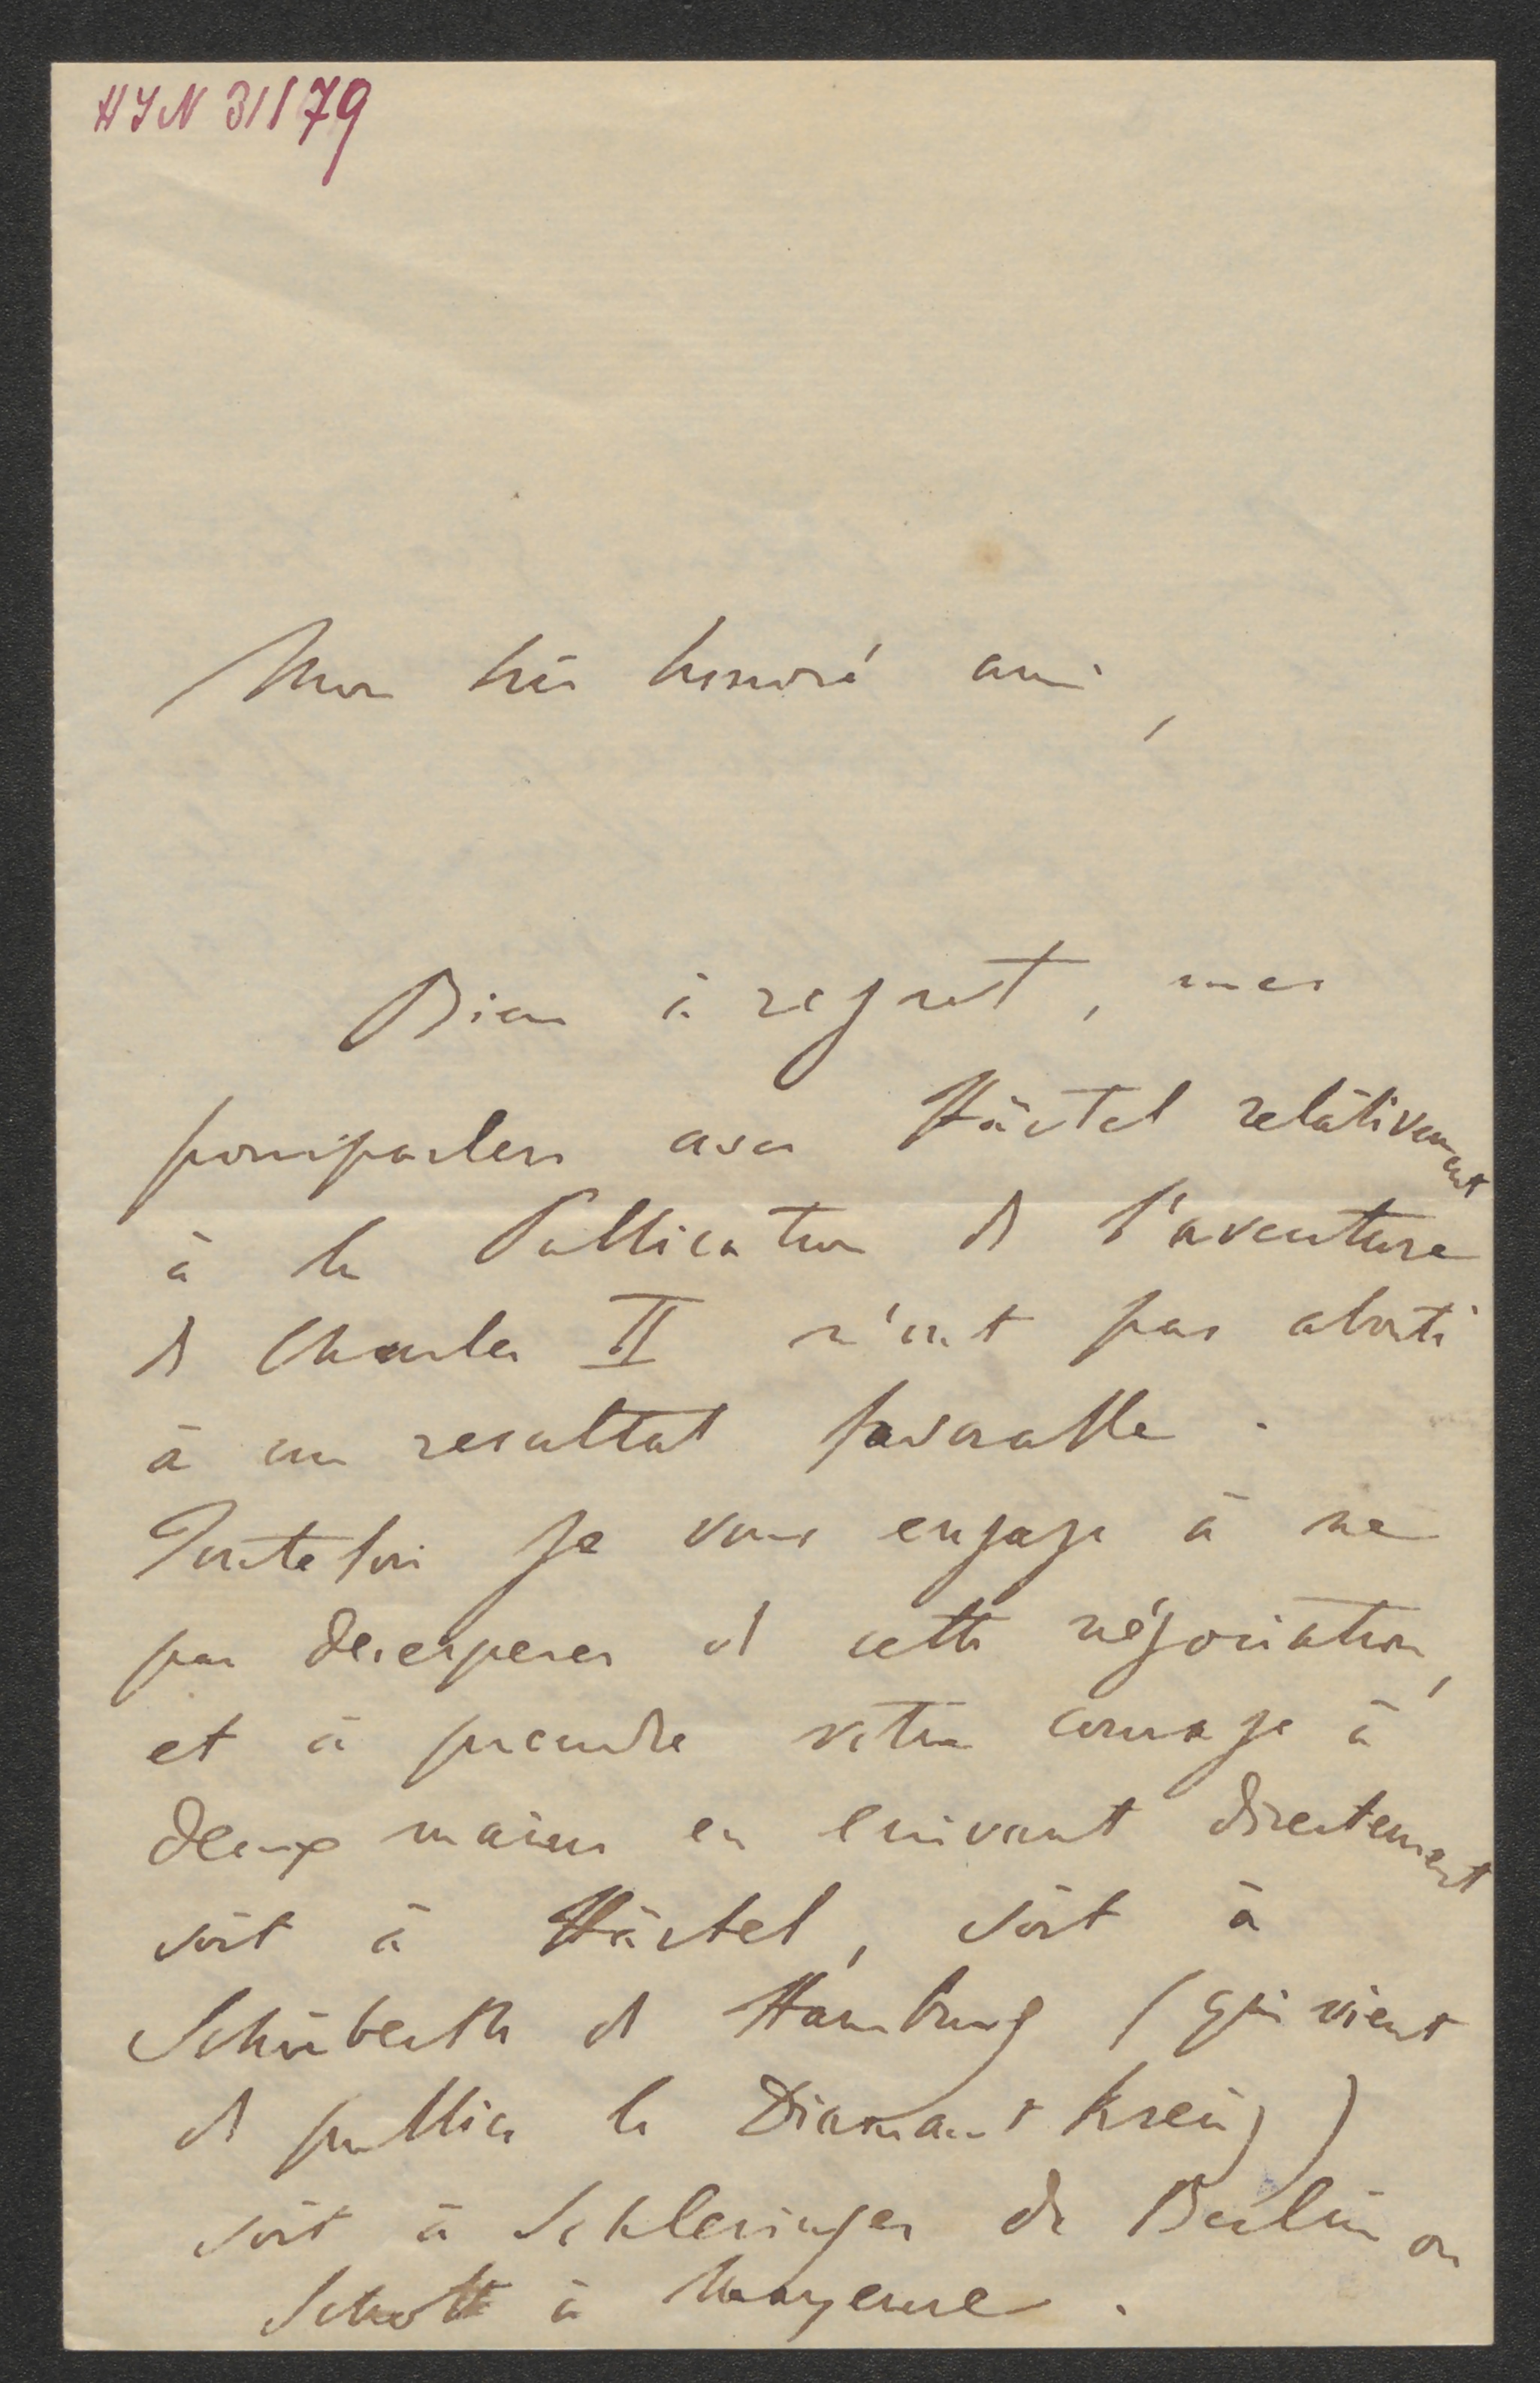 HJN 31/79
Mon très honoré ami,
Bien à regret, mes
pourparlers avec Härtel relativement
à la Publication de l'aventure
de Charles II n'ont pas abouti
à un resultat favorable.
Toutefois je vous engage à ne
pas desesperer de cette négociation,
et à prendre votre courage à
deux mains en ecrivant directement
soit à Härtel, soit à
Schüberth de Hamburg (qui vient
de publier le Diamant Kreuz)
soit à Schlesinger de Berlin ou
Schott à Mayence.